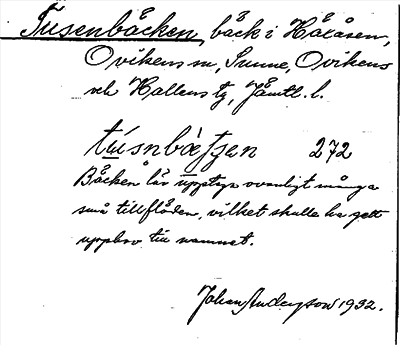 Tusenbäcken, bäck i Håkåsen,
Ovikens sn, Sunne, Ovikens
och Hallens tg, Jämtl. l.
tu̇snbæⱼen 272
Bäcken lär upptaga ovanligt många
små tillflöden, vilket skulle ha gett
upphov till namnet.
Johan Anderson 1932.